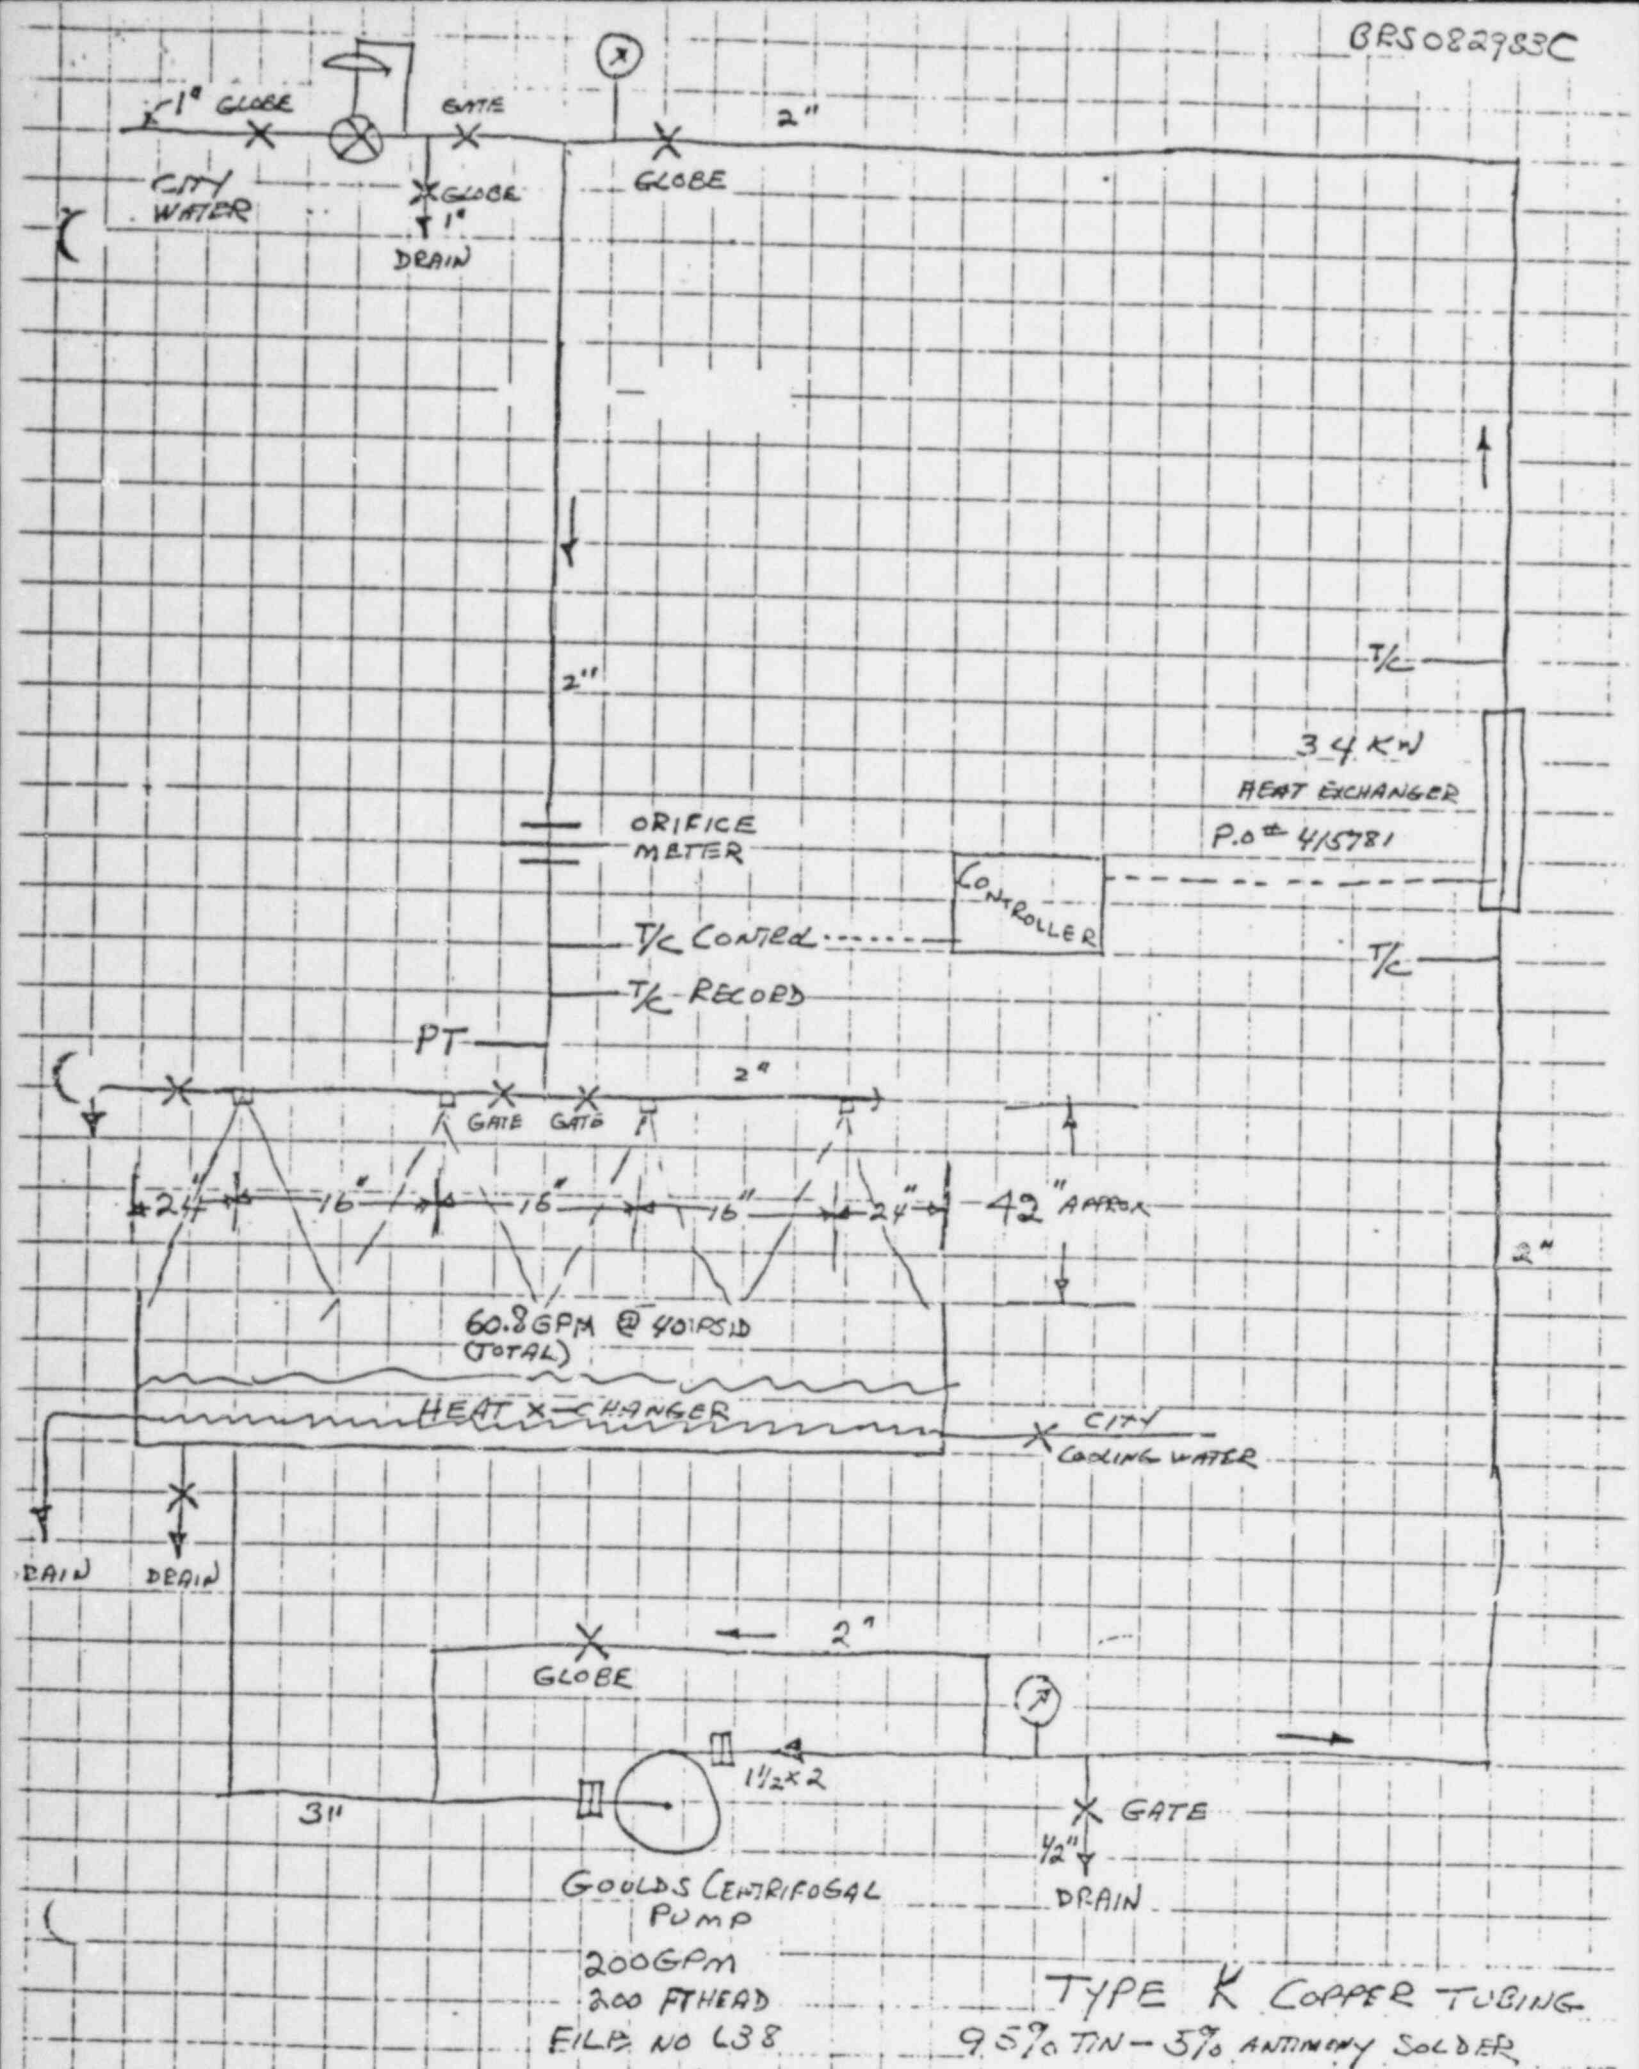 BRS082983C
1" GLOBE
GATE
2"
CITY
WATER
GLOBE
1"
DRAIN
GLOBE
2"
T/C
34 KW
HEAT EXCHANGER
P.O# 415781
ORIFICE
METER
CONTROLLER
T/C CONTROL
T/C
T/C RECORD
PT
2"
GATE GATE
24" 16" 16" 16" 24" 42" APPROX
2"
60.8 GPM @ 40 PSID
(TOTAL)
HEAT X-CHANGER
CITY
COOLING WATER
RAIN DRAIN
2"
GLOBE
1 1/2 x 2
3"
GATE
1/2"
DRAIN
GOULDS CENTRIFOGAL
PUMP
200 GPM
200 FT HEAD
FILE NO L38
TYPE K COPPER TUBING
95% TIN - 5% ANTIMONY SOLDER